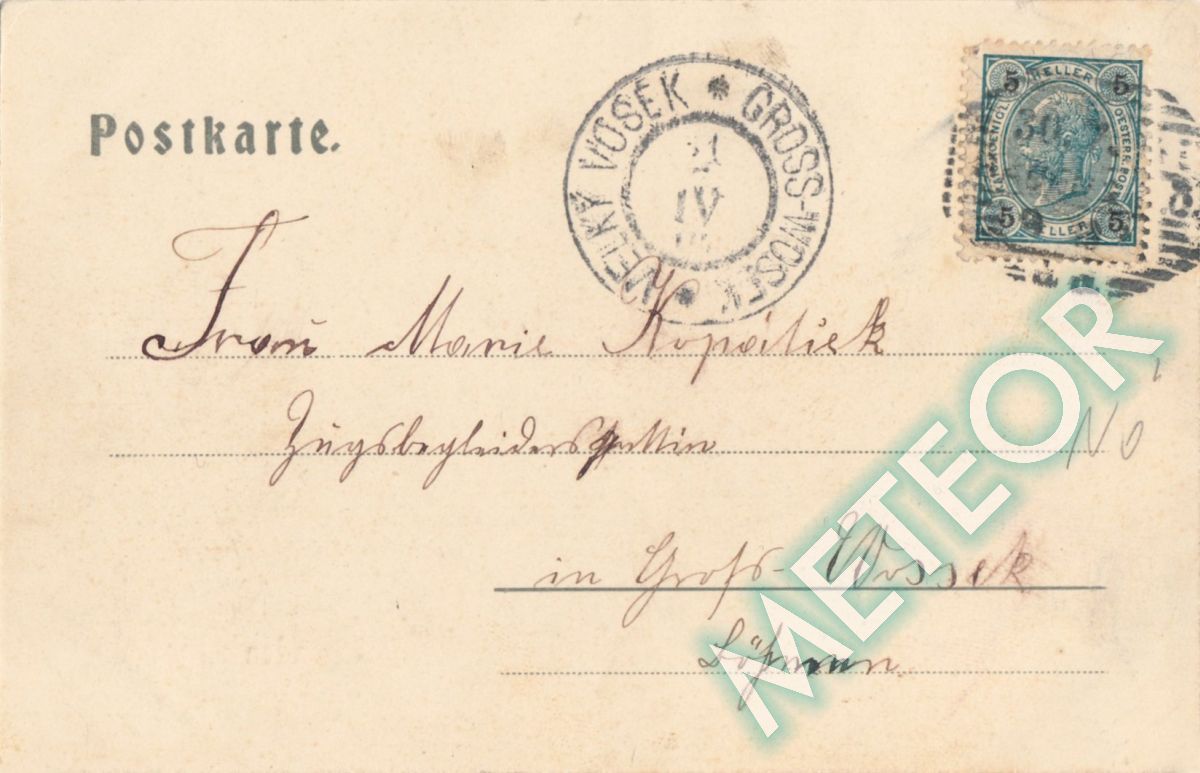 Postkarte.
VELKÝ VOSEK * GROSS-WOSEK *
IV
5 HELLER 5
OESTERR. POST
5 HELLER 5
Frau Marie
Zugsbegleidersgattin
in Groß-Wossek
Böhmen
METEOR